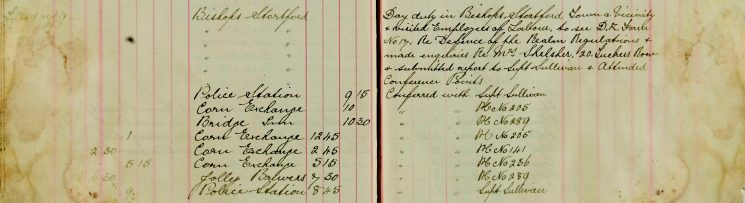 Bishops Stortford
"
"
"
"
Police Station 9 15
Corn Exchange 10
Bridge Inn 10 30
1 Corn Exchange 12 45
2 30 Corn Exchange 2 45
5 15 Corn Exchange 5 15
6 30 Jolly Brewers 7 30
9 Police Station 8 45
Day duty in Bishops Stortford Town & Vicinity
& visited Employers of Labour, to see D.R. Form
No 17, Re Defence of the Realm Regulations &
made enquiries Re Mrs Skelsher, 20. Tuckers Row
& submitted report to Supt Sullivan & Attended
Conference Points
Conferred with Supt Sullivan
" " PC No 205
" " PC No 289
" " PC No 205
" " PC No 141
" " PC No 236
" " PC No 289
" " Supt Sullivan